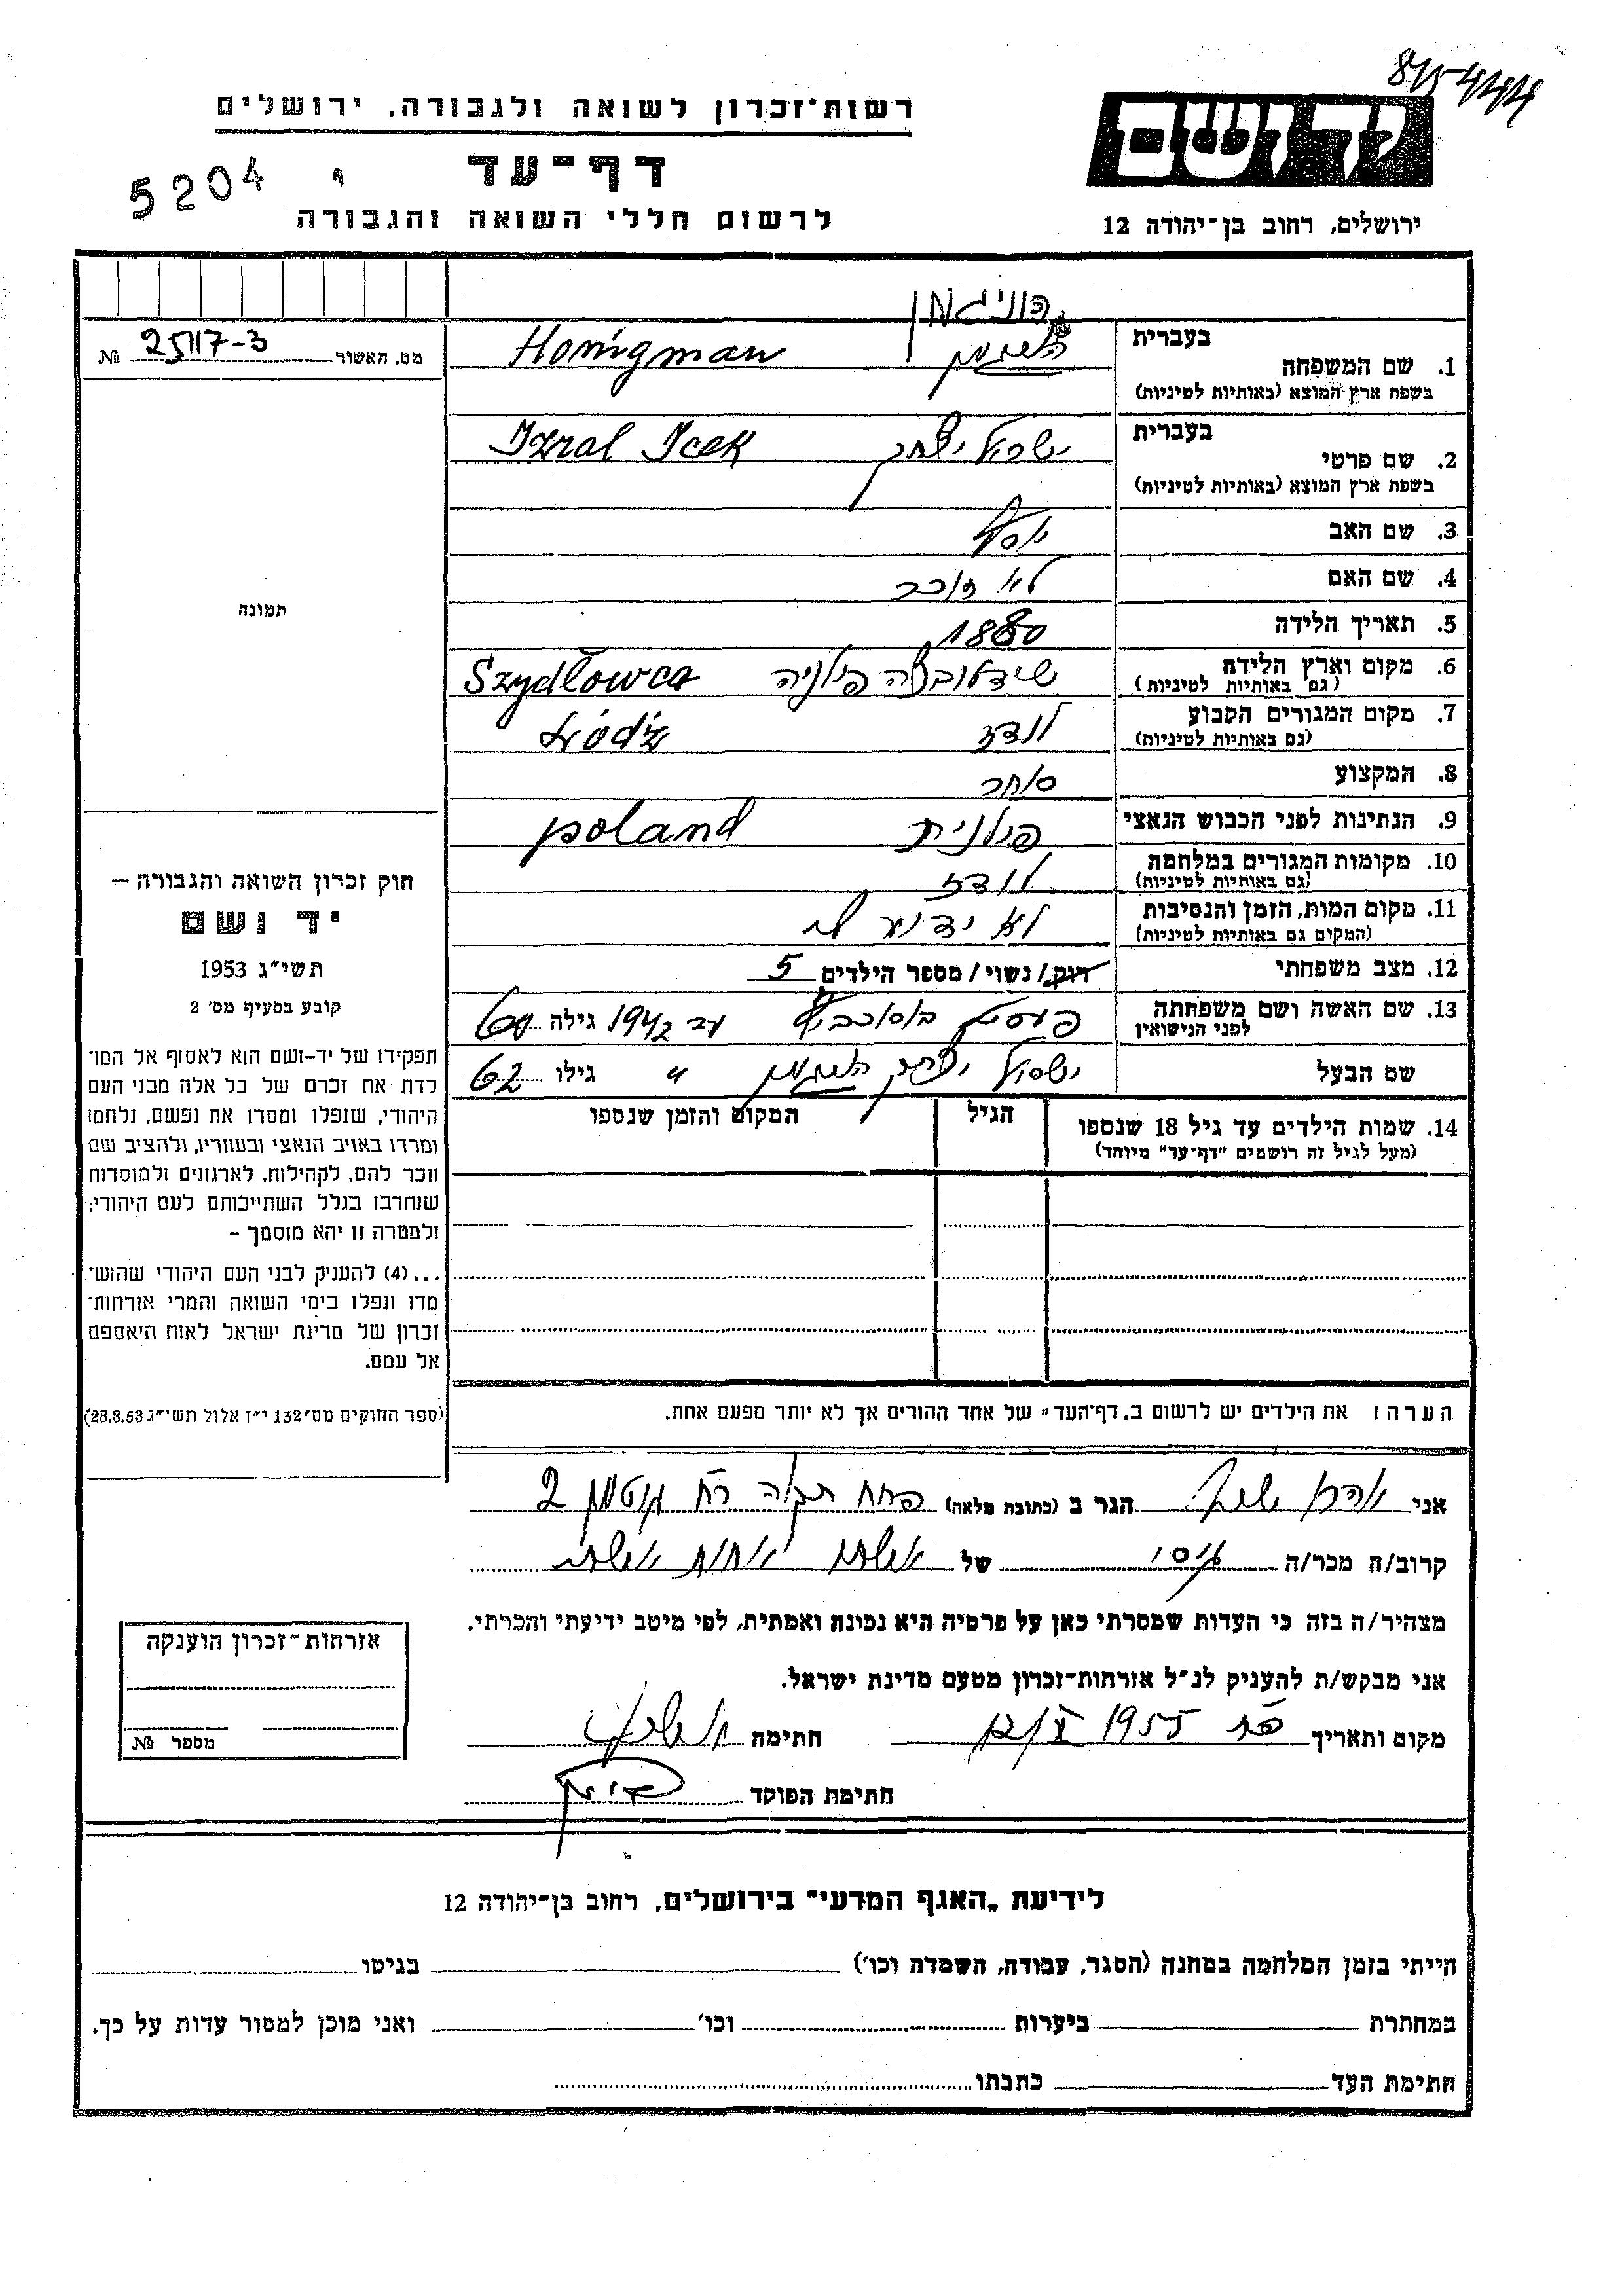 רשות־זכרון לשואה ולגבורה, ירושלים
דף־עד
לרשום חללי השואה והגבורה
5204
ידושם
ירושלים, רחוב בן־יהודה 12
מס. האשור 2517-3 №
תמונה
חוק זכרון השואה והגבורה –
יד ושם
תשי״ג 1953
קובע בסעיף מס׳ 2
תפקידו של יד-ושם הוא לאסוף אל המו־
לדת את זכרם של כל אלה מבני העם
היהודי, שנפלו ומסרו את נפשם, נלחמו
ומרדו באויב הנאצי ובעוזריו, ולהציב שם
וזכר להם, לקהילות, לארגונים ולמוסדות
שנחרבו בגלל השתייכותם לעם היהודי;
ולמטרה זו יהא מוסמך –
...(4) להעניק לבני העם היהודי שהוש־
מדו ונפלו בימי השואה והמרי אזרחות־
זכרון של מדינת ישראל לאות היאספם
אל עמם.
(ספר החוקים מס׳ 132 י״ז אלול תשי״ג 28.8.53)
הוניגמן
בעברית
1. שם המשפחה Honigman
בשפת ארץ המוצא (באותיות לטיניות)
בעברית
2. שם פרטי ישראל יצחק Izral Icek
בשפת ארץ המוצא (באותיות לטיניות)
3. שם האב יוסף
4. שם האם לא זוכר
5. תאריך הלידה 1880
6. מקום וארץ הלידה שידלובצה פולניה Szydłowca
(גם באותיות לטיניות)
7. מקום המגורים הקבוע לודז Łódź
(גם באותיות לטיניות)
8. המקצוע סוחר
9. הנתינות לפני הכבוש הנאצי פולנית poland
10. מקומות המגורים במלחמה לודז
(גם באותיות לטיניות)
11. מקום המות, הזמן והנסיבות לא ידוע לי
(המקום גם באותיות לטיניות)
12. מצב משפחתי רוק/נשוי/מספר הילדים 5
13. שם האשה ושם משפחתה 1942 גילה 60
לפני הנישואין
שם הבעל ישראל יצחק הוניגמן " גילו 62
14. שמות הילדים עד גיל 18 שנספו הגיל המקום והזמן שנספו
(מעל לגיל זה רושמים "דף־עד" מיוחד)
הערה: את הילדים יש לרשום ב„דף־העד״ של אחד ההורים אך לא יותר מפעם אחת.
אני הגר ב (כתובת מלאה) פתח תקוה רח גוטמן 2
קרוב/ה מכר/ה גיסו של
מצהיר/ה בזה כי העדות שמסרתי כאן על פרטיה היא נכונה ואמתית, לפי מיטב ידיעתי והכרתי.
אני מבקש/ת להעניק לנ״ל אזרחות־זכרון מטעם מדינת ישראל.
מקום ותאריך 1955 חתימה
חתימת הפוקד
אזרחות־זכרון הוענקה
מספר №
לידיעת „האגף המדעי״ בירושלים, רחוב בן־יהודה 12
הייתי בזמן המלחמה במחנה (הסגר, עבודה, השמדה וכו׳) בגיטו
במחתרת ביערות וכו׳ ואני מוכן למסור עדות על כך.
חתימת העד כתבתו